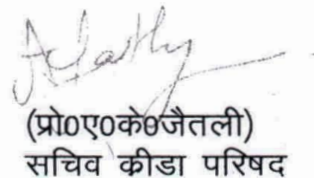 (प्रो0ए0के0जैतली)
सचिव क्रीडा परिषद